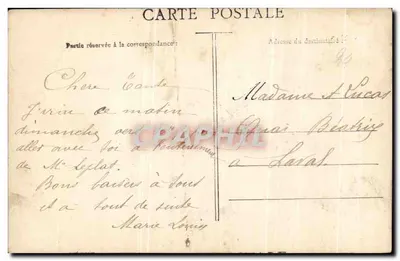 CARTE POSTALE
Partie réservée à la correspondance
Adresse du destinataire
Chère Tante
J'irai ce matin
dimanche vers
aller avec toi à
de Mr
Bons baisers à tous
et à tout de suite
Marie Louise
Madame A Lucas
Quai Béatrix
à Laval
CPAPHIL